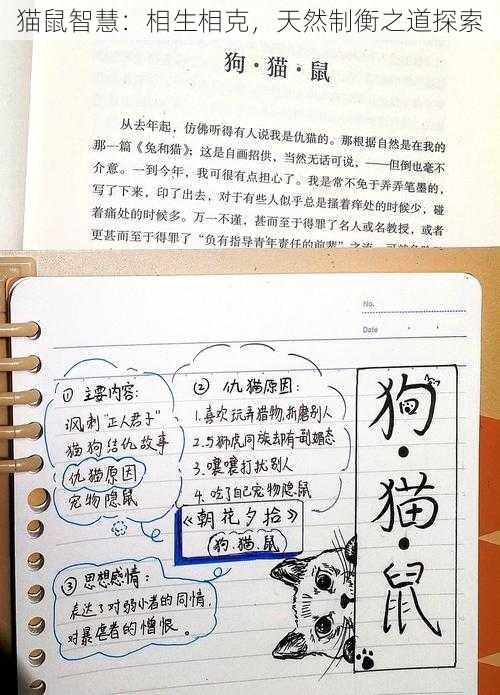 猫鼠智慧：相生相克，天然制衡之道探索
狗·猫·鼠
从去年起，仿佛听得有人说我是仇猫的。那根据自然是在我的
那一篇《兔和猫》；这是自画招供，当然无话可说，——但倒也毫不
介意。一到今年，我可很有点担心了。我是常不免于弄弄笔墨的，
写了下来，印了出去，对于有些人似乎总是搔着痒处的时候少，碰
着痛处的时候多。万一不谨，甚而至于得罪了名人或名教授，或者
更甚而至于得罪了“负有指导青年责任的前辈”之流
No.
Date
① 主要内容：
讽刺“正人君子”
猫狗结仇故事
仇猫原因
宠物隐鼠
② 仇猫原因：
1.喜欢玩弄猎物，折磨别人
2.与狮虎同族却有一副媚态
3.嚷嚷打扰别人
4.吃了自己宠物隐鼠
《朝花夕拾》
狗.猫.鼠
③ 思想感情：
表达了对弱小者的同情，
对暴虐者的憎恨。
狗·猫·鼠